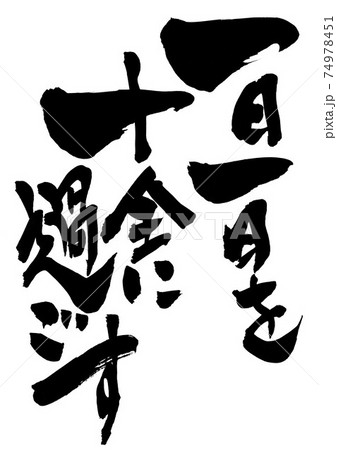 一日一日を
十全に
過ごす
PIXTA
pixta.jp - 74978451